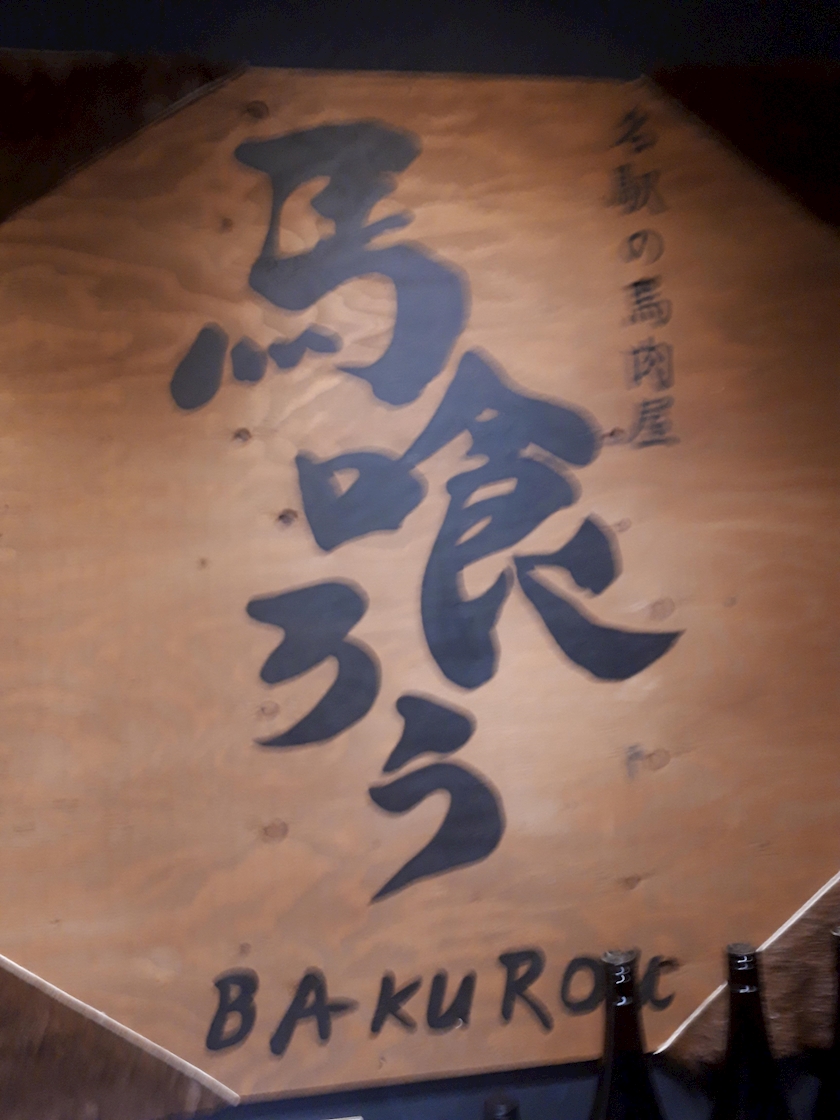 名駅の馬肉屋
馬喰ろう
BAKUROU